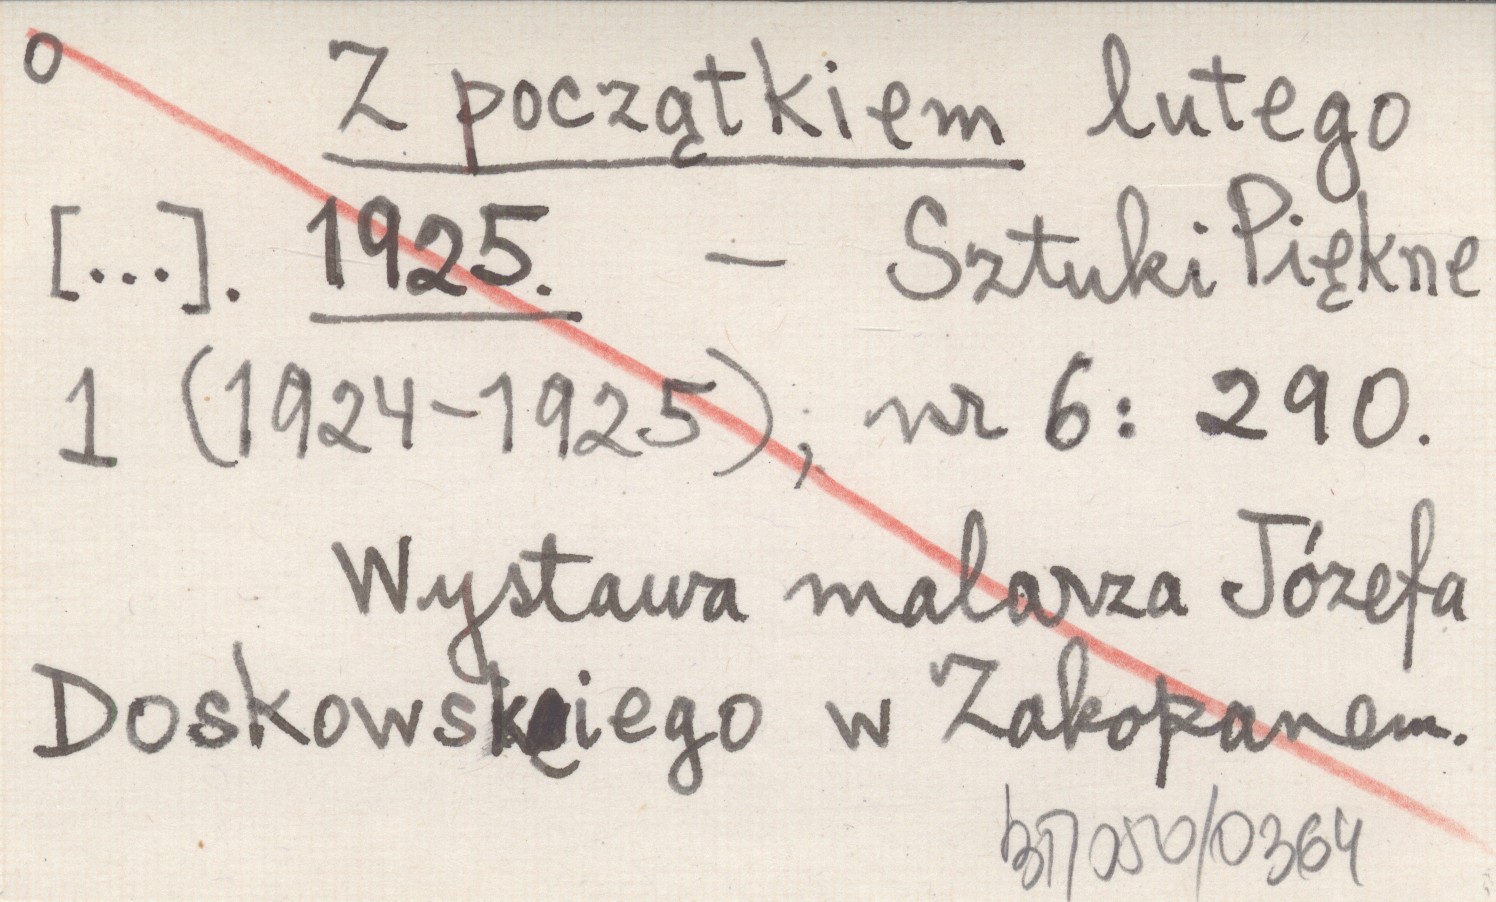 o Z początkiem lutego
[...]. 1925. – Sztuki Piękne
1 (1924-1925), nr 6: 290.
Wystawa malarza Józefa
Doskowskiego w Zakopanem.
050/0364